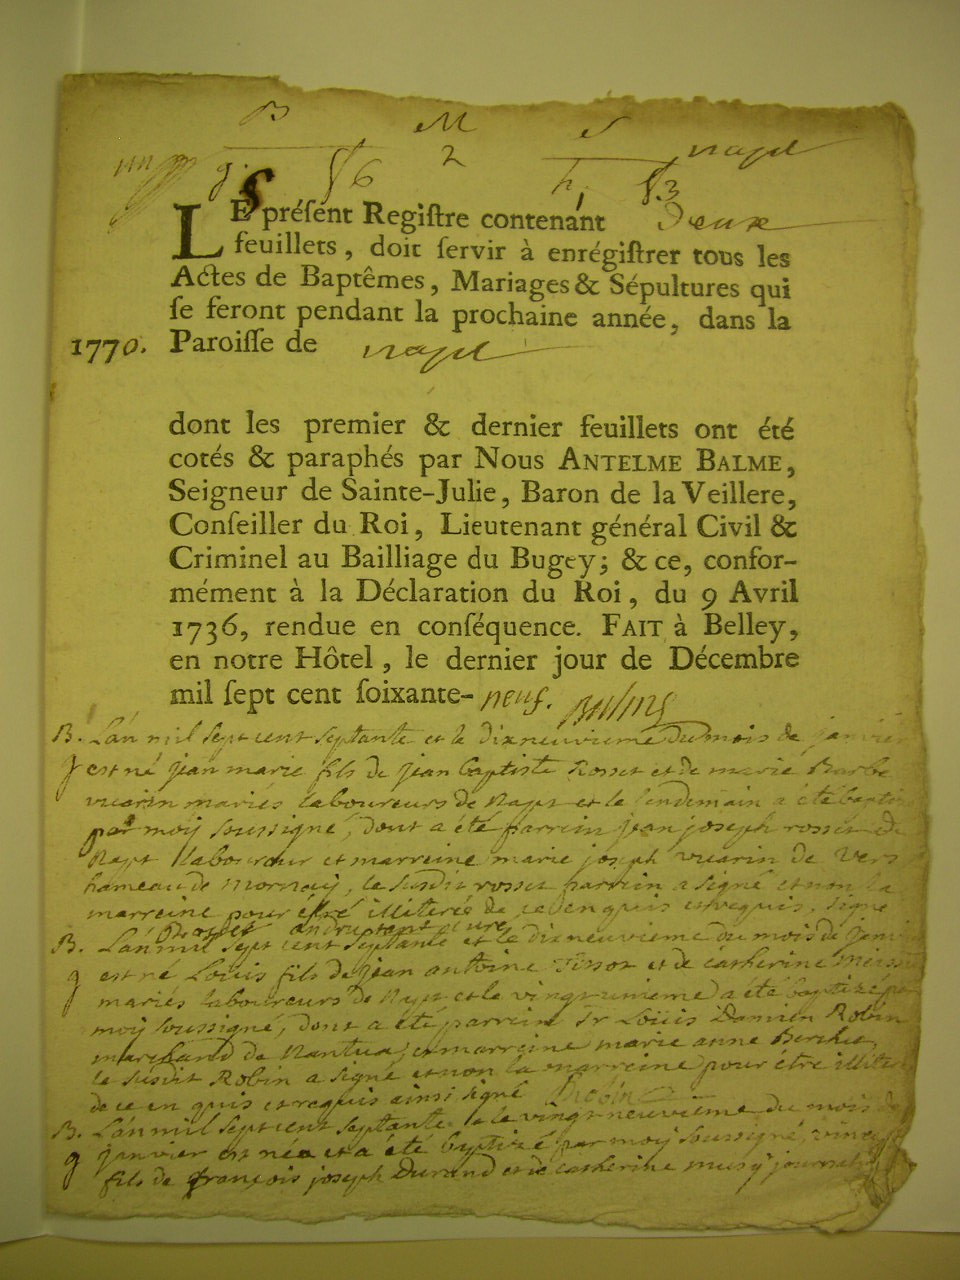 B M S
g. 6 2 h, 3 napt
LE préſent Regiſtre contenant Deux
feuillets, doit ſervir à enrégiſtrer tous les
Actes de Baptêmes, Mariages & Sépultures qui
ſe feront pendant la prochaine année, dans la
1770. Paroiſſe de napt
dont les premier & dernier feuillets ont été
cotés & paraphés par Nous ANTELME BALME,
Seigneur de Sainte-Julie, Baron de la Veillere,
Conſeiller du Roi, Lieutenant général Civil &
Criminel au Bailliage du Bugey; & ce, confor-
mément à la Déclaration du Roi, du 9 Avril
1736, rendue en conſéquence. FAIT à Belley,
en notre Hôtel, le dernier jour de Décembre
mil ſept cent ſoixante-neuf. Balme
B. L'an mil sept cent septante et le dixneuvieme du mois de janvier
g est né jean marie fils de jean baptiste Rosset et de marie Barbe
vuarin mariés laboureurs de Napt et le lendemain a été baptisé
par moÿ soussigné, dont a été parrein jean joseph rosset de
Napt laboureur et marreine marie joseph vuarin de Vers
hameau de mornay, le susdit rosset parrein a signé et non la
marreine pour être illiterée de ce enquis et requis, signé
Rosset curé
B. L'an mil sept cent septante et le dixneuvieme du mois de janvier
g est né Louis fils de jean antoine Tissot et de catherine
mariés laboureurs de Napt et le vingtunieme a été baptizé par
moÿ soussigné, dont a été parrein Sr Loüis Damien Robin
marchand de Nantua, et marreine marie anne Berthet,
le susdit Robin a signé et non la marreine pour être
de ce en quis et requis ainsi signé Robin
B. L'an mil sept cent septante et le vingt neuvieme du mois de
g janvier est née et a été baptizé par moÿ soussigné,
fils de françois joseph Durand et de catherine musÿ